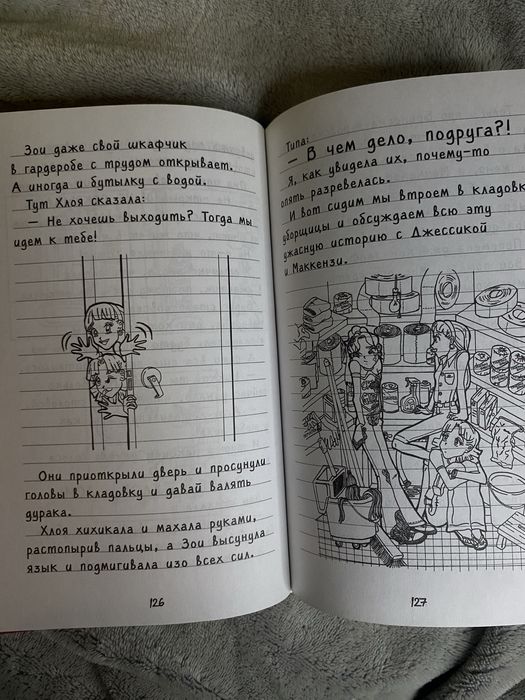 Зои даже свой шкафчик
в гардеробе с трудом открывает.
А иногда и бутылку с водой.
Тут Хлоя сказала:
— Не хочешь выходить? Тогда мы
идем к тебе!
Они приоткрыли дверь и просунули
головы в кладовку и давай валять
дурака.
Хлоя хихикала и махала руками,
растопырив пальцы, а Зои высунула
язык и подмигивала изо всех сил.
126
Типа:
— В чем дело, подруга?!
Я, как увидела их, почему-то
опять разревелась.
И вот сидим мы втроем в кладовк
уборщицы и обсуждаем всю эту
ужасную историю с Джессикой
и Маккензи.
127